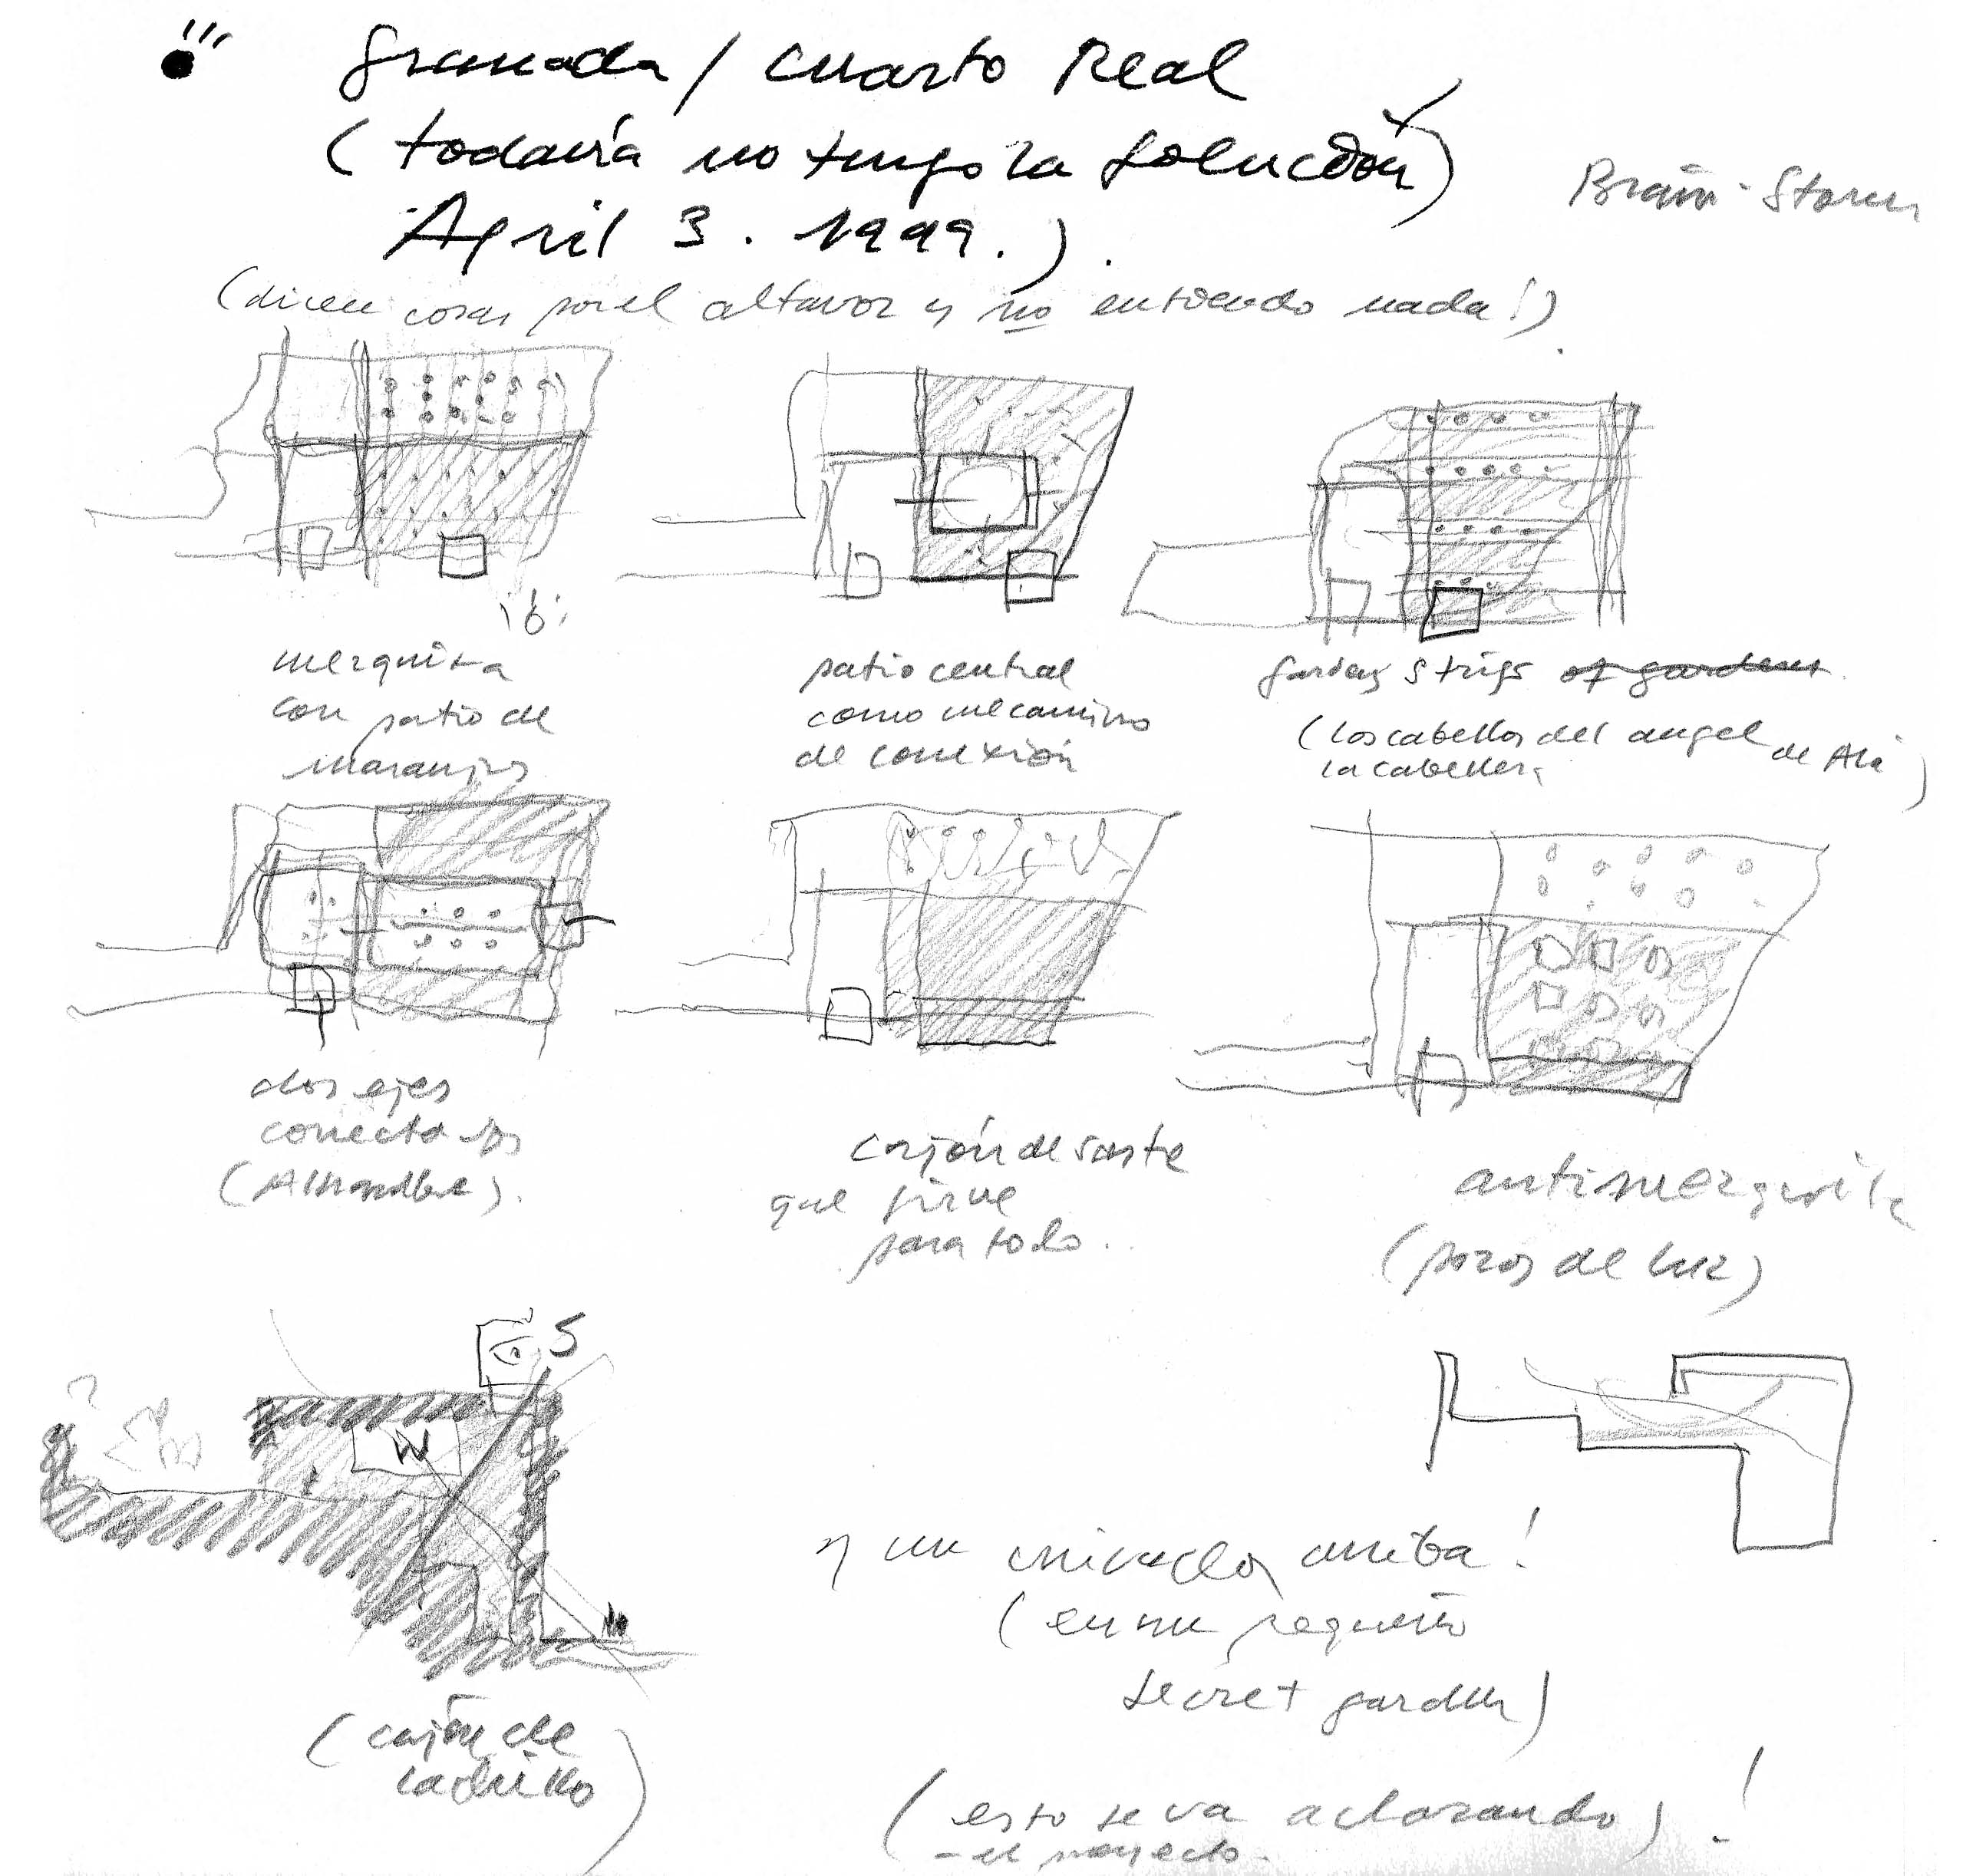 Granada / Cuarto Real
(todavía no tengo la solución)
April 3. 1999.).
Brain-Storm
(dicen cosas por el altavoz y no entiendo nada!)
mezquita
con patio de
naranjos
patio central
como mecanismo
de conexión
garden strips of gardens
(los cabellos del angel de Alá)
la cabellera
dos ejes
conectados
(Alhambra).
cajón de sastre
que sirve
para todo..
antimezquita
(pozos de luz)
S
N
(cajón de
ladrillo)
y un mirador arriba!
(en un pequeño
secret garden)
(esto se va aclarando)!
- el proyecto.